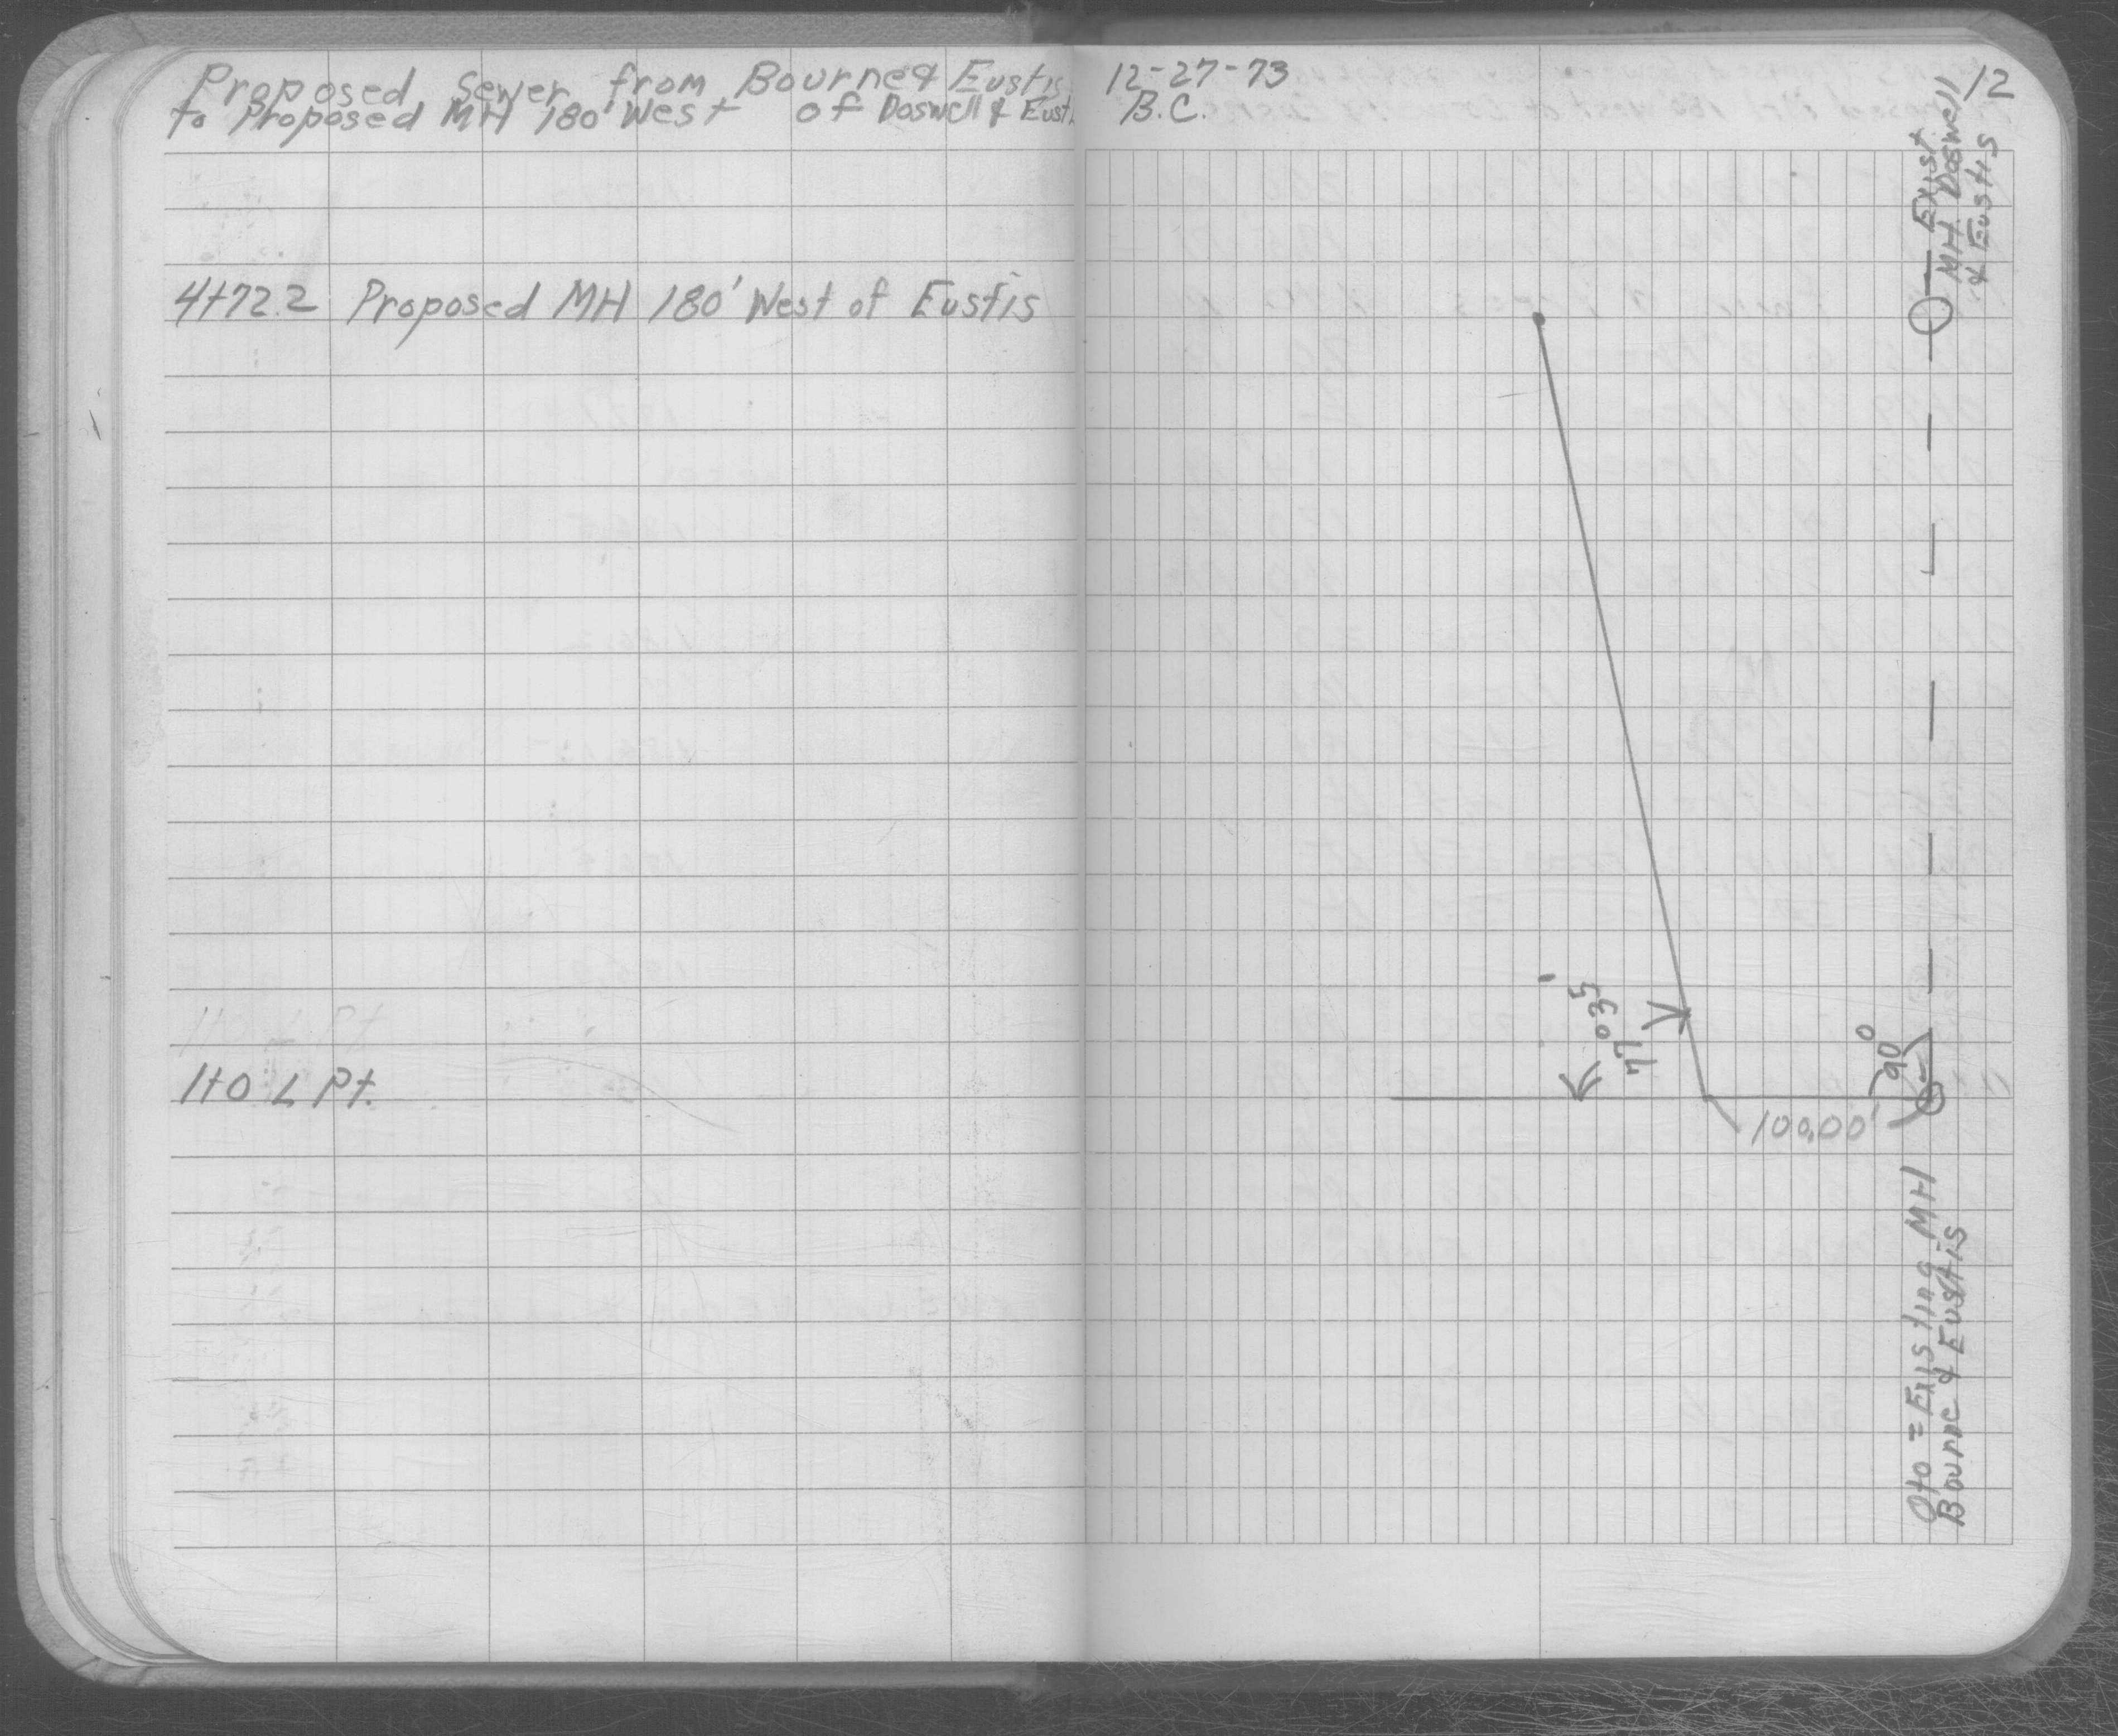 Proposed Sewer from Bourne & Eustis
to Proposed MH 180' West of Doswell & Eust.
4+72.2 Proposed MH 180' West of Eustis
1+0 ∠ Pt.
1+0 ∠ Pt.
12-27-73
B.C.
12
Exist
MH Doswell
& Eustis
77°35'
90°
100.00'
0+0 = Existing MH
Bourne & Eustis